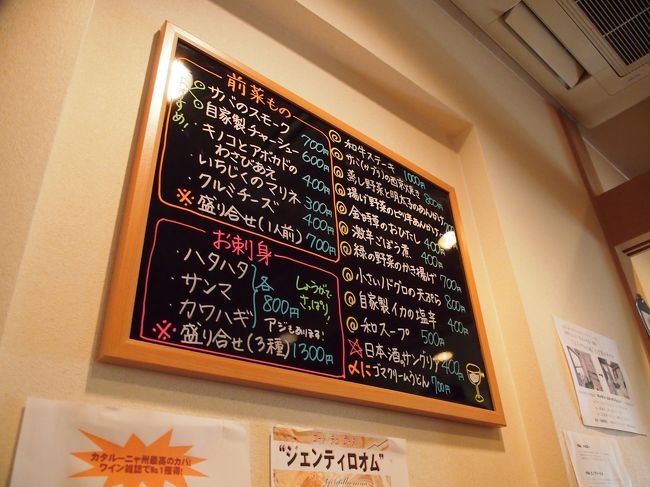 前菜もの
おすすめ!
サバのスモーク 700円
自家製チャーシュー 600円
キノコとアボカドの
わさびあえ 400円
いちじくのマリネ 300円
クルミチーズ 400円
※盛り合せ(1人前) 700円
お刺身
・ハタハタ
・サンマ
・カワハギ
各800円
しょうがで
さっぱり。
アジもあります!
※盛り合せ(3種) 1300円
◎和牛ステーキ 1000円
◎サバ(サワラ)の西京焼き 800円
◎蒸し野菜と明太子のあんかけ
◎揚げ野菜のピリ辛あんかけ
◎金時草のおひたし 400円
◎激辛ごぼう煮 400円
◎緑の野菜のかき揚げ 700円
◎小さいノドグロの天ぷら 800円
◎自家製イカの塩辛 400円
◎和スープ 500円
☆日本酒サングリア 400円
〆にゴマクリームうどん 700円
カタルーニャ州最高のカバ!
ワイン雑誌でNo1獲得!
"ジェンティロオム"